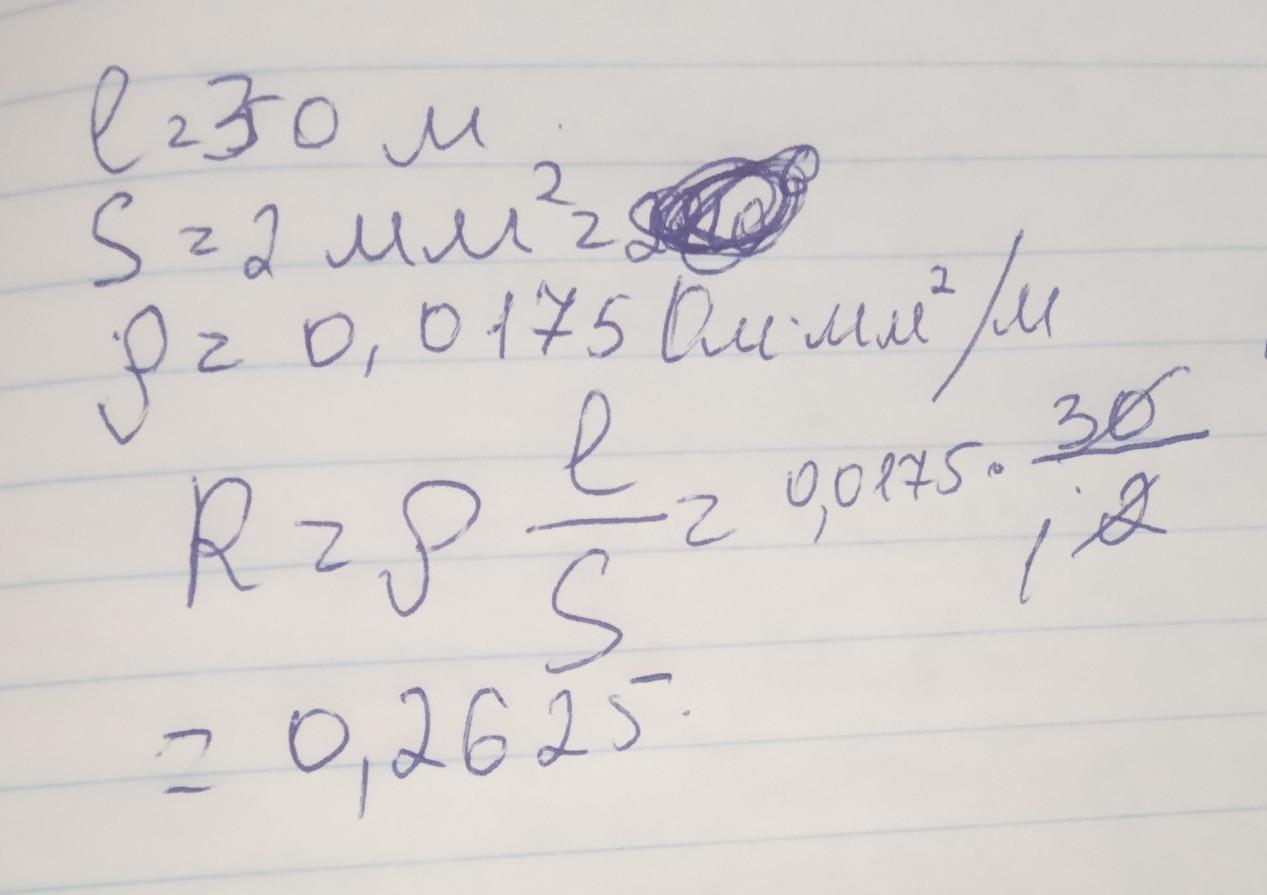 l = 30 м
S = 2 мм² =
ρ = 0,0175 Ом·мм²/м
R = ρ l/S = 0,0175 · 30/2
= 0,2625